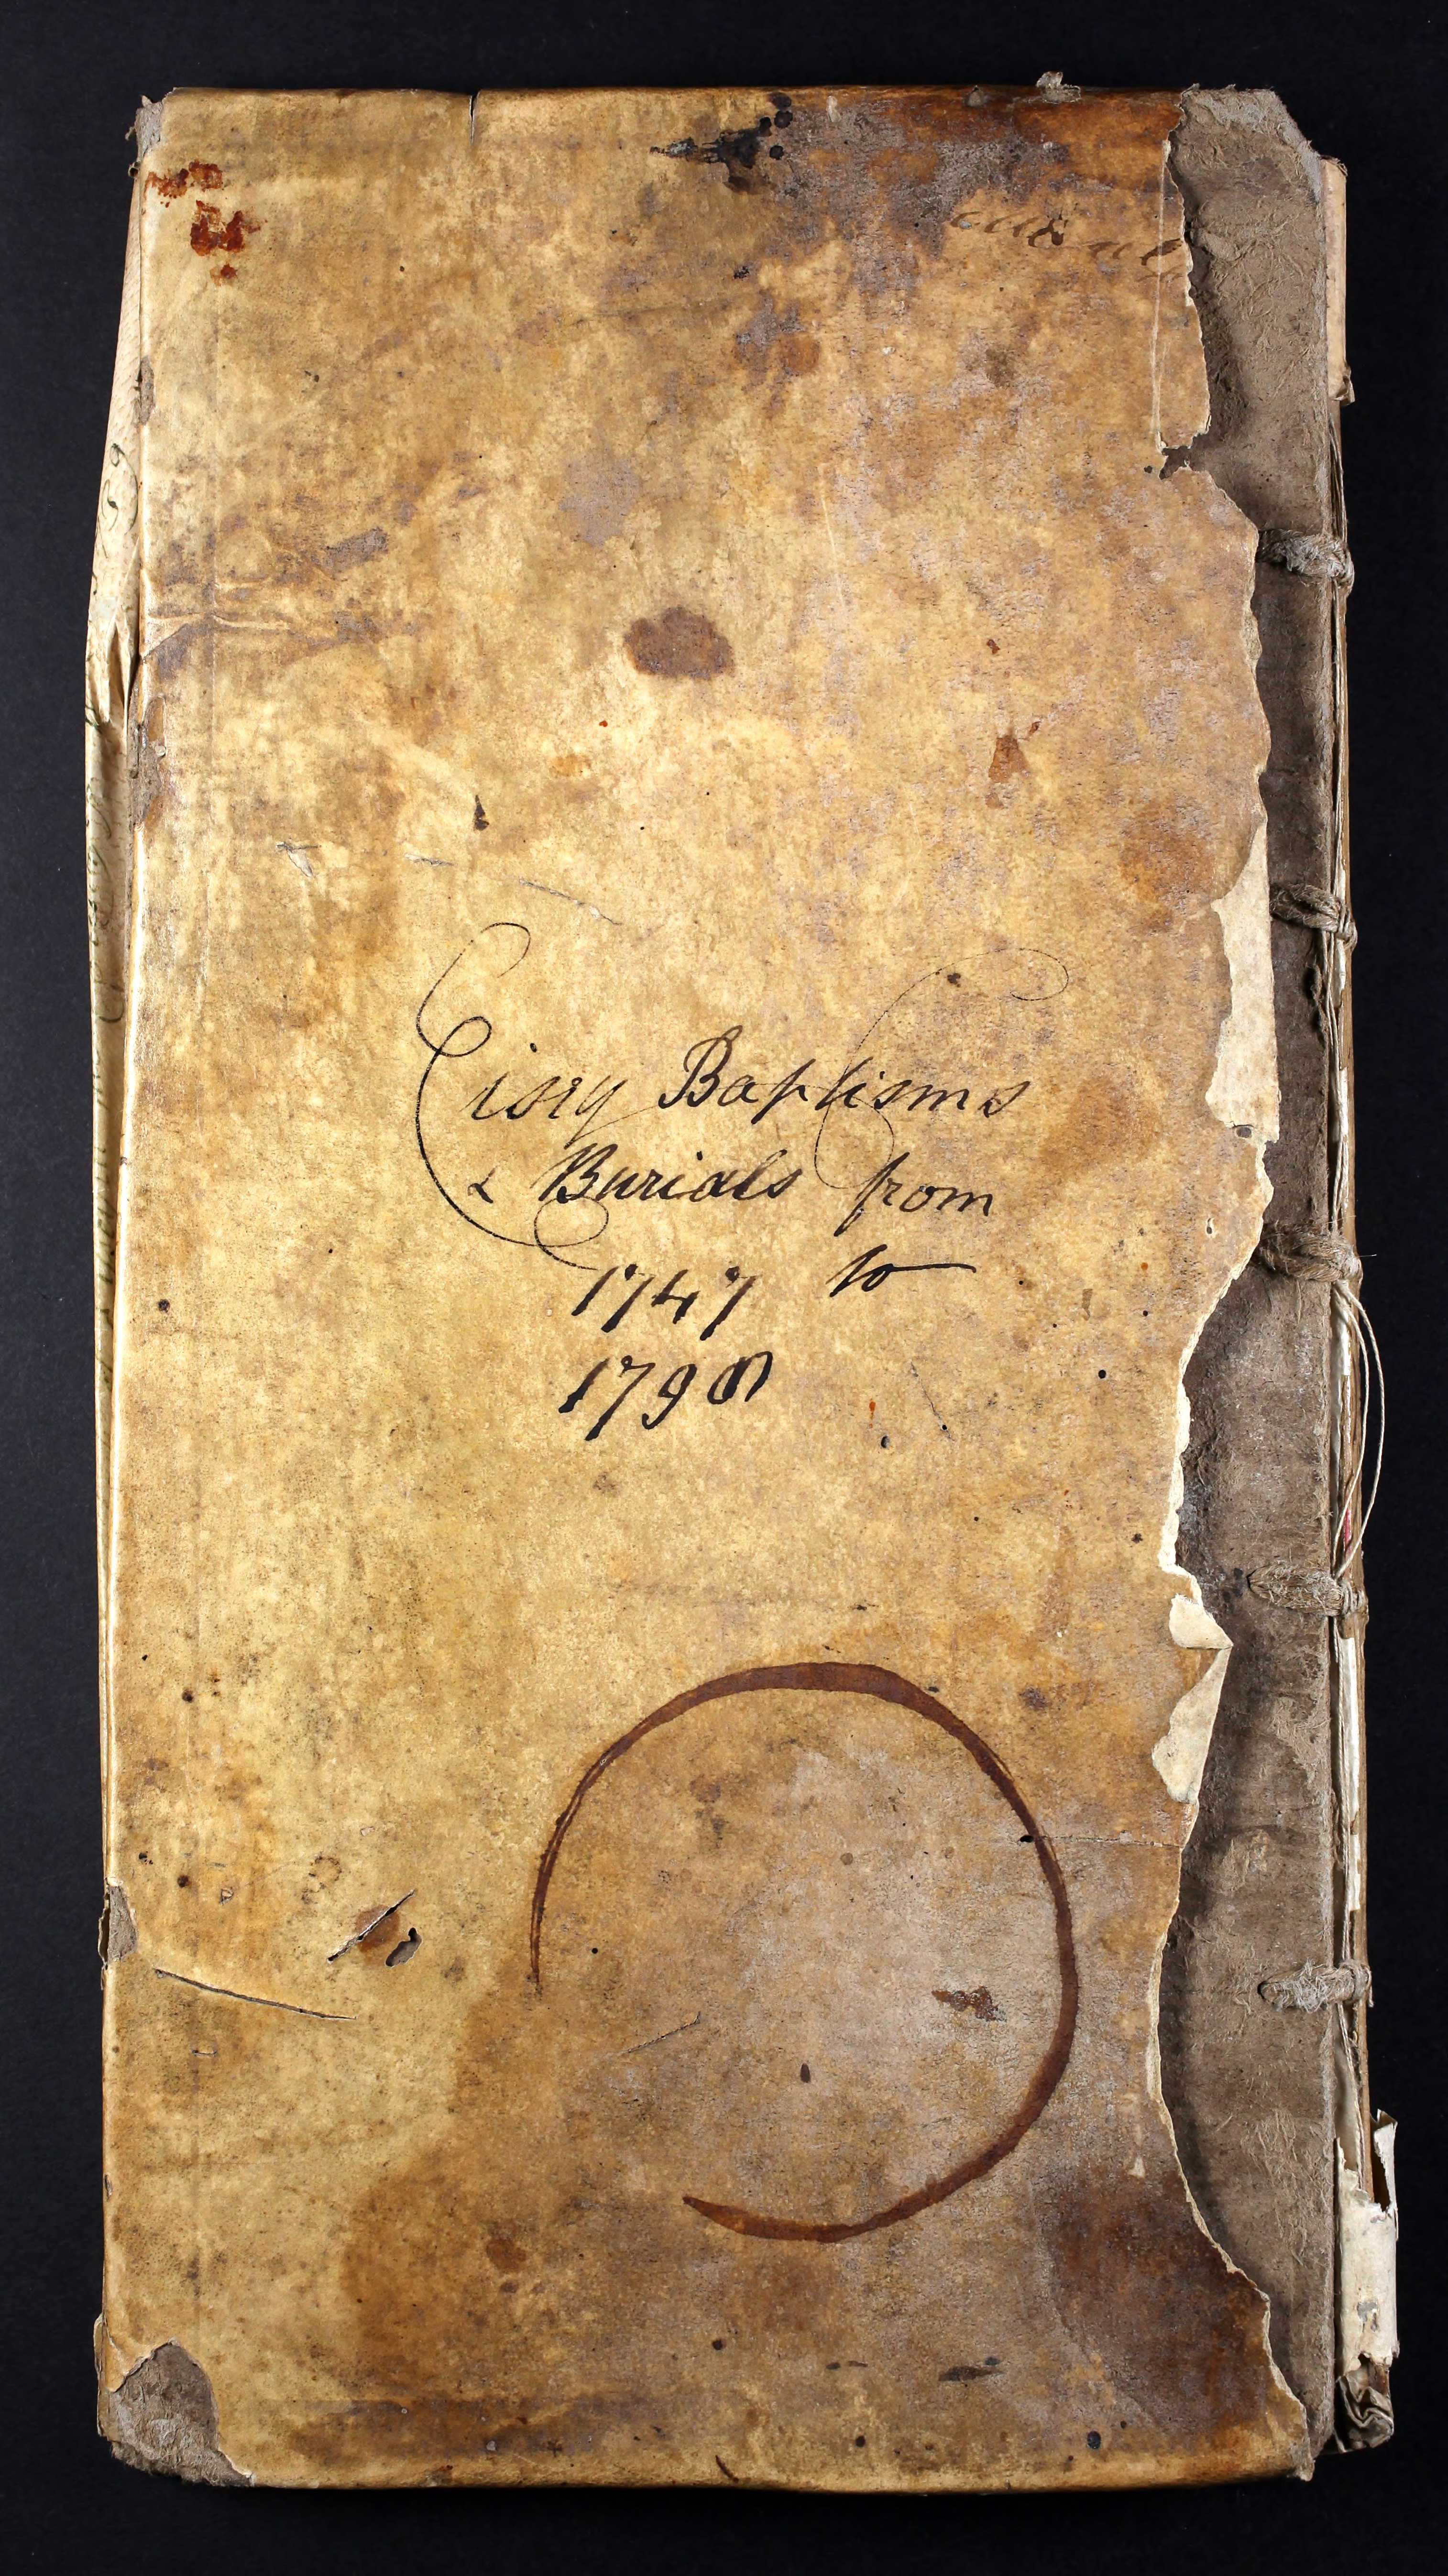 Eisey Baptisms
& Burials from
1747 to
1798